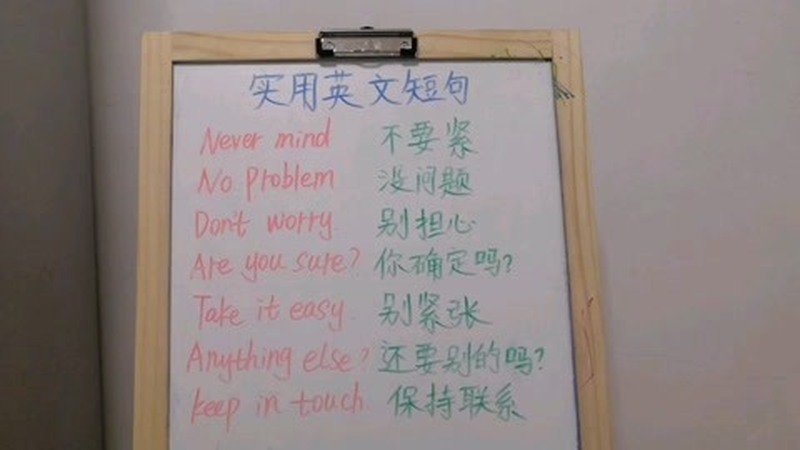 实用英文短句
Never mind 不要紧
No Problem 没问题
Don't worry 别担心
Are you sure? 你确定吗?
Take it easy 别紧张
Anything else? 还要别的吗?
keep in touch 保持联系